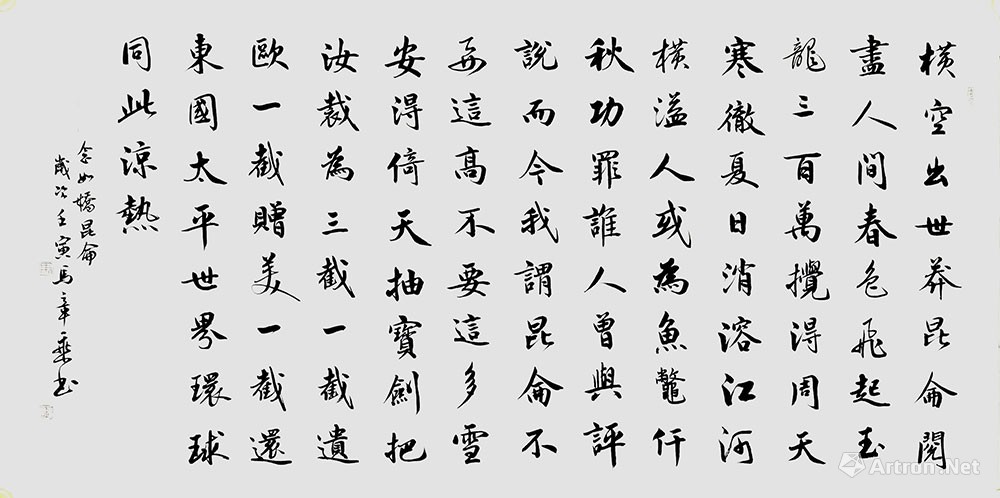 橫空出世莽昆侖閱
盡人間春色飛起玉
龍三百萬攪得周天
寒徹夏日消溶江河
橫溢人或為魚鱉仟
秋功罪誰人曾與評
說而今我謂昆侖不
要這高不要這多雪
安得倚天抽寶劍把
汝裁為三截一截遺
歐一截贈美一截還
東國太平世界環球
同此涼熱
念奴嬌昆侖
歲次壬寅馬章乘書
Artron.Net